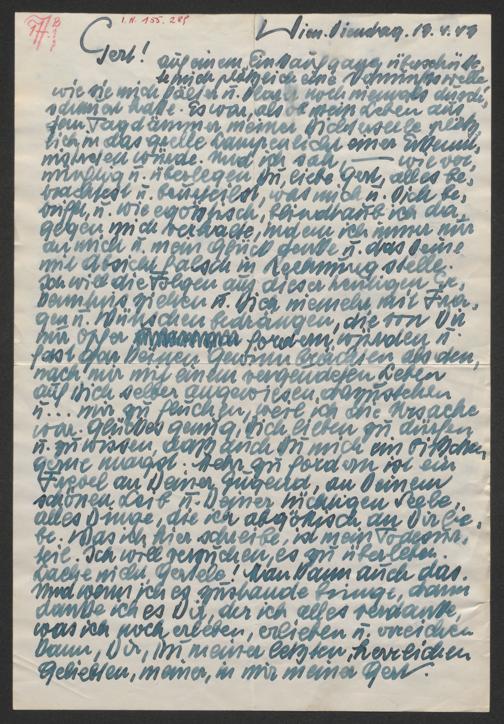 I.N. 155.285
Wien. Dienstag. 17. V. 49
Gert!
Auf einem Einkaufgang überschütte-
te mich plötzlich eine Vernunftswelle
wie sie mich kälter u. klarer noch niemals durch
schauert hatte. Es war, als ob mein Leben aus
dem Tagdämmer meiner Dichterseele plötz-
lich in das grelle Lampenlicht einer
würde. Und ich sah, — wie ver-
nünftig u. überlegen Du, liebe Gert, alles be-
trachtest u. beurteilst, was mich u. Dich be-
trifft, u. wie egoistisch, ich da-
gegen mich indem ich immer nur
an mich u. mein Glück denke u. das Deine
mit Absicht falsch in Rechnung stelle.
Ich will die Folgen aus dieser heutigen Er-
kenntnis ziehen u. Dich niemehr mit Fra-
gen u. Wünschen bedrängen, die von Dir
nur Opfer fordern würden u.
fast gar keinen Gewinn brächten als den,
nach mir mit einem vergeudeten Leben
auf Dich selber angewiesen dazustehen
u... mir zu fluchen, weil ich die Ursache
war. Glückes genug, Dich lieben zu dürfen
u. zu wissen, dass auch Du mich ein bißchen
gerne magst. Mehr zu fordern ist ein
Frevel an Deiner Jugend, an Deinem
schönen Leib u. Deiner Seele,
alles Dinge, die ich abgöttisch an Dir lie-
be. Was ich hier schreibe, ist mein Todesur-
teil. Ich will versuchen, es zu überleben.
Lache nicht Gertele! Man kann auch das.
Und wenn ich es zustande bringe, dann
danke ich es Dir, der ich alles verdanke,
was ich noch erleben, erlieben u. erreichen
kann, Dir, Du meiner letzten, herrlichen
Geliebten, meiner, in mir meiner Gert.